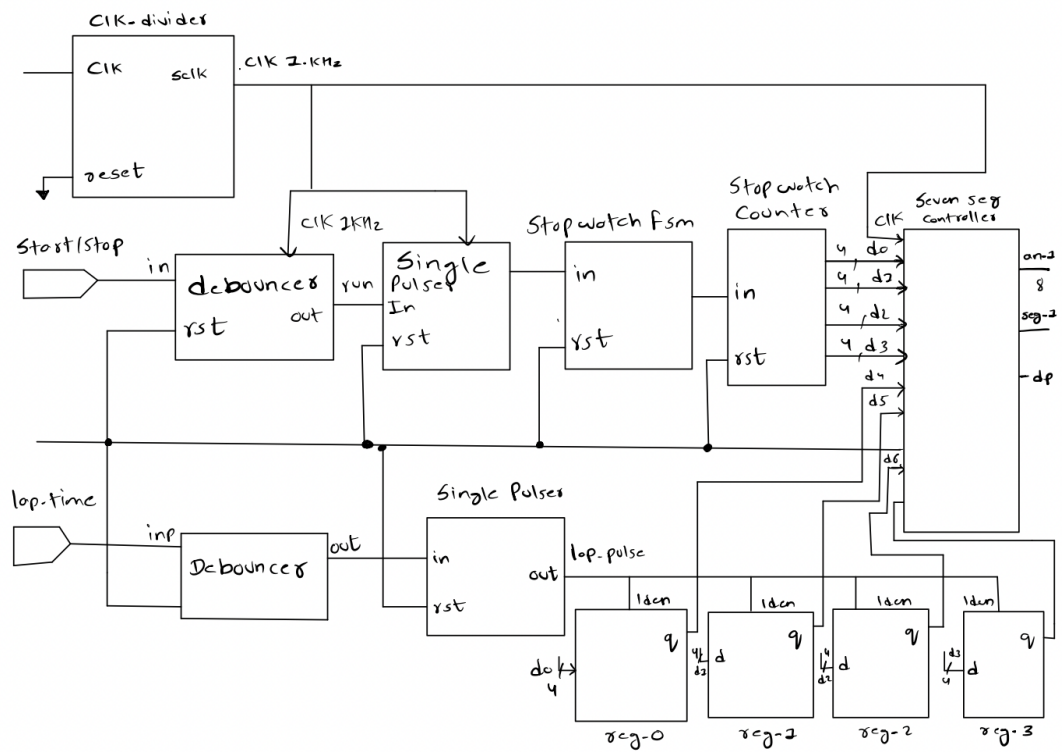 ClK-divider
ClK
sclk
.ClK 1.KHz
reset
Start/Stop
in
debouncer
out
rst
ClK 1KHz
run
Single
Pulser
In
rst
Stopwatch Fsm
in
rst
Stopwatch
Counter
in
rst
4, d0
4, d1
4, d2
4, d3
d4
d5
d6
ClK
Seven seg
Controller
an-1
8
seg-1
-dp
lap-time
inp
Debouncer
out
Single Pulser
in
out
rst
lap-pulse
lden
lden
lden
lden
q
q
q
q
d0
4
4
d1
d
4
d2
d
d3
4
d
reg-0
reg-1
reg-2
reg-3